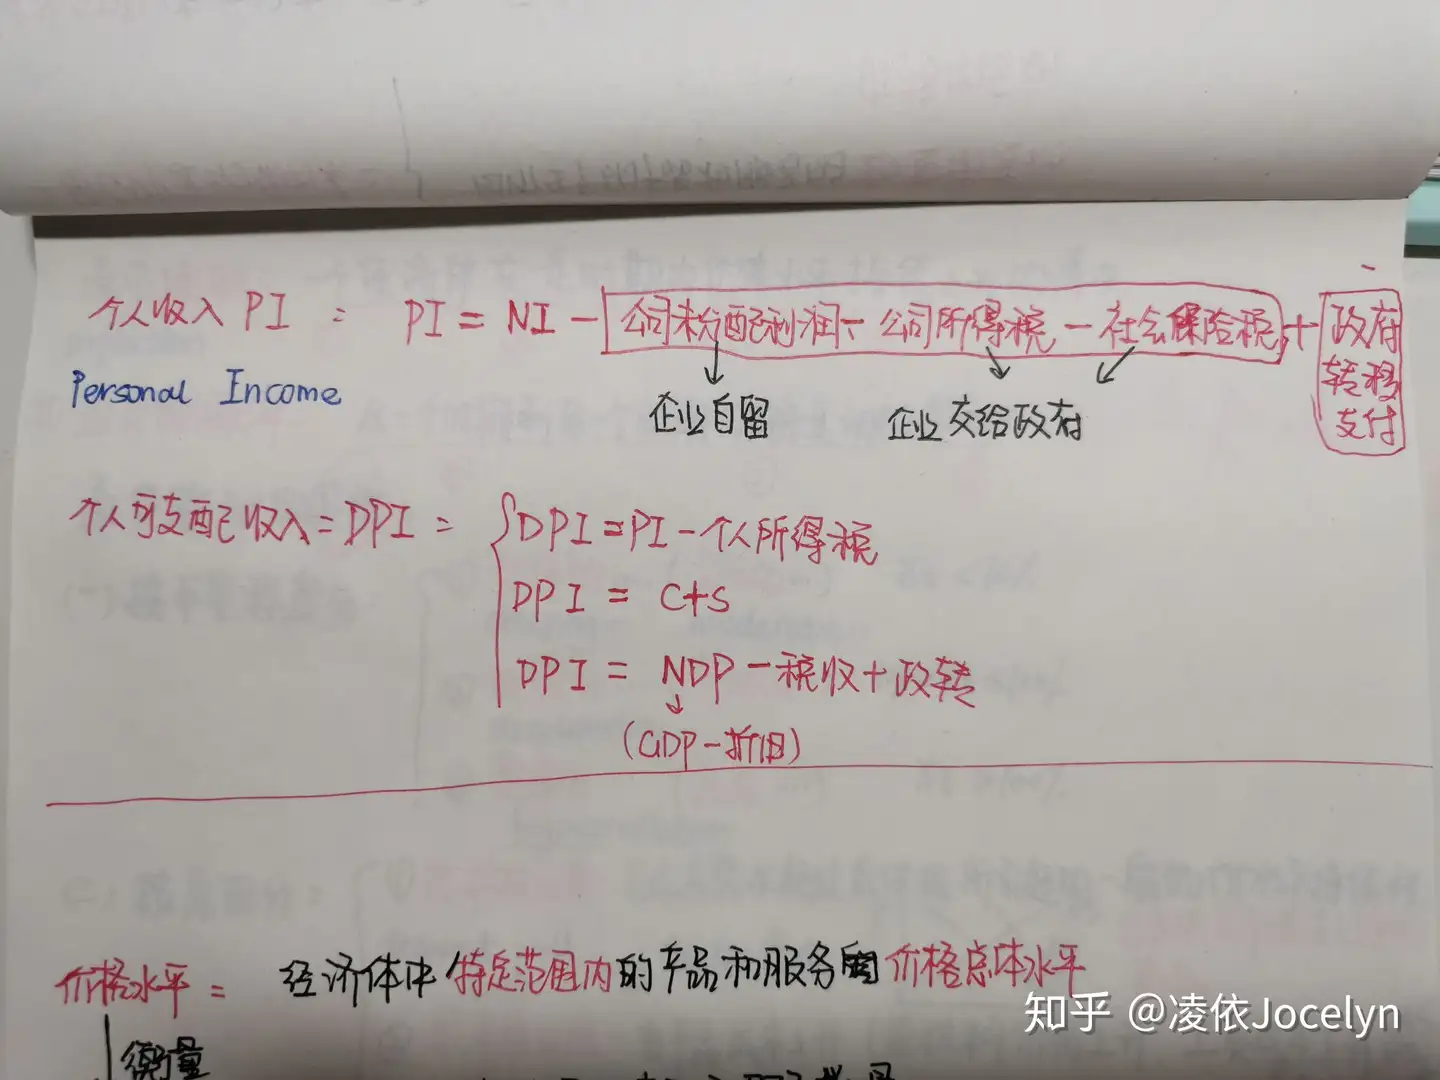 个人收入 PI : PI = NI - 公司未分配利润 - 公司所得税 - 社会保险税 + 政府转移支付
Personal Income
企业自留
企业交给政府
个人可支配收入 = DPI =
DPI = PI - 个人所得税
DPI = C+S
DPI = NDP - 税收 + 政转
(GDP - 折旧)
价格水平 = 经济体中特定范围内的产品和服务的价格总体水平
衡量
知乎 @凌依Jocelyn